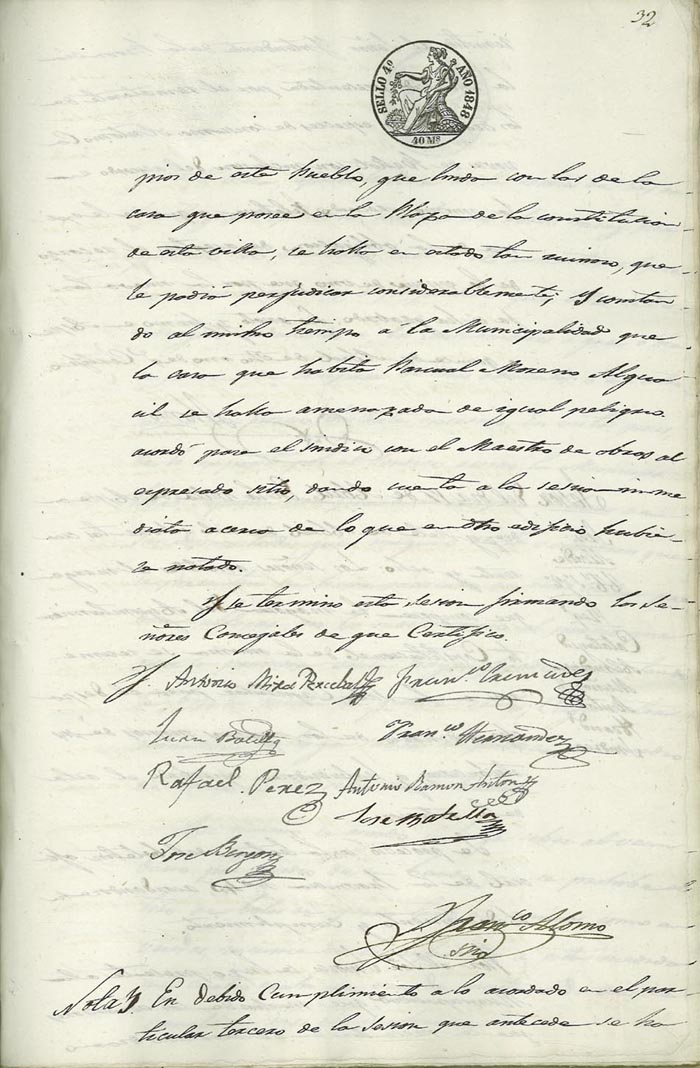 32
SELLO 4º AÑO 1848
40 Ms
pios de este Pueblo, que linda con las de la
casa que posee en la Plaza de la constitucion
de esta villa, se halla en estado tan ruinoso, que
le podia perjudicar considerablemente; y constan
do al mismo tiempo a la Municipalidad que
la casa que habita Pascual Moreno Algua
cil se halla amenazada de igual peligro
acordó pase el sindico con el Maestro de obras al
espresado sitio, dando cuenta a la sesion inme
diata acerca de lo que en otro edificio hubie-
re notado.
Y se termino esta sesion firmando los Se-
ñores Concejales de que Certifico.
Antonio Mira Perceval Fran.co
Juan Fran.co Hernandez
Rafael Perez Antonio Ramon Anton
Jose Botella
Jose
Franco Alonso
Srio
Nota En debido Cumplimiento a lo acordado en el par
ticular tercero de la sesion que antecede se ha